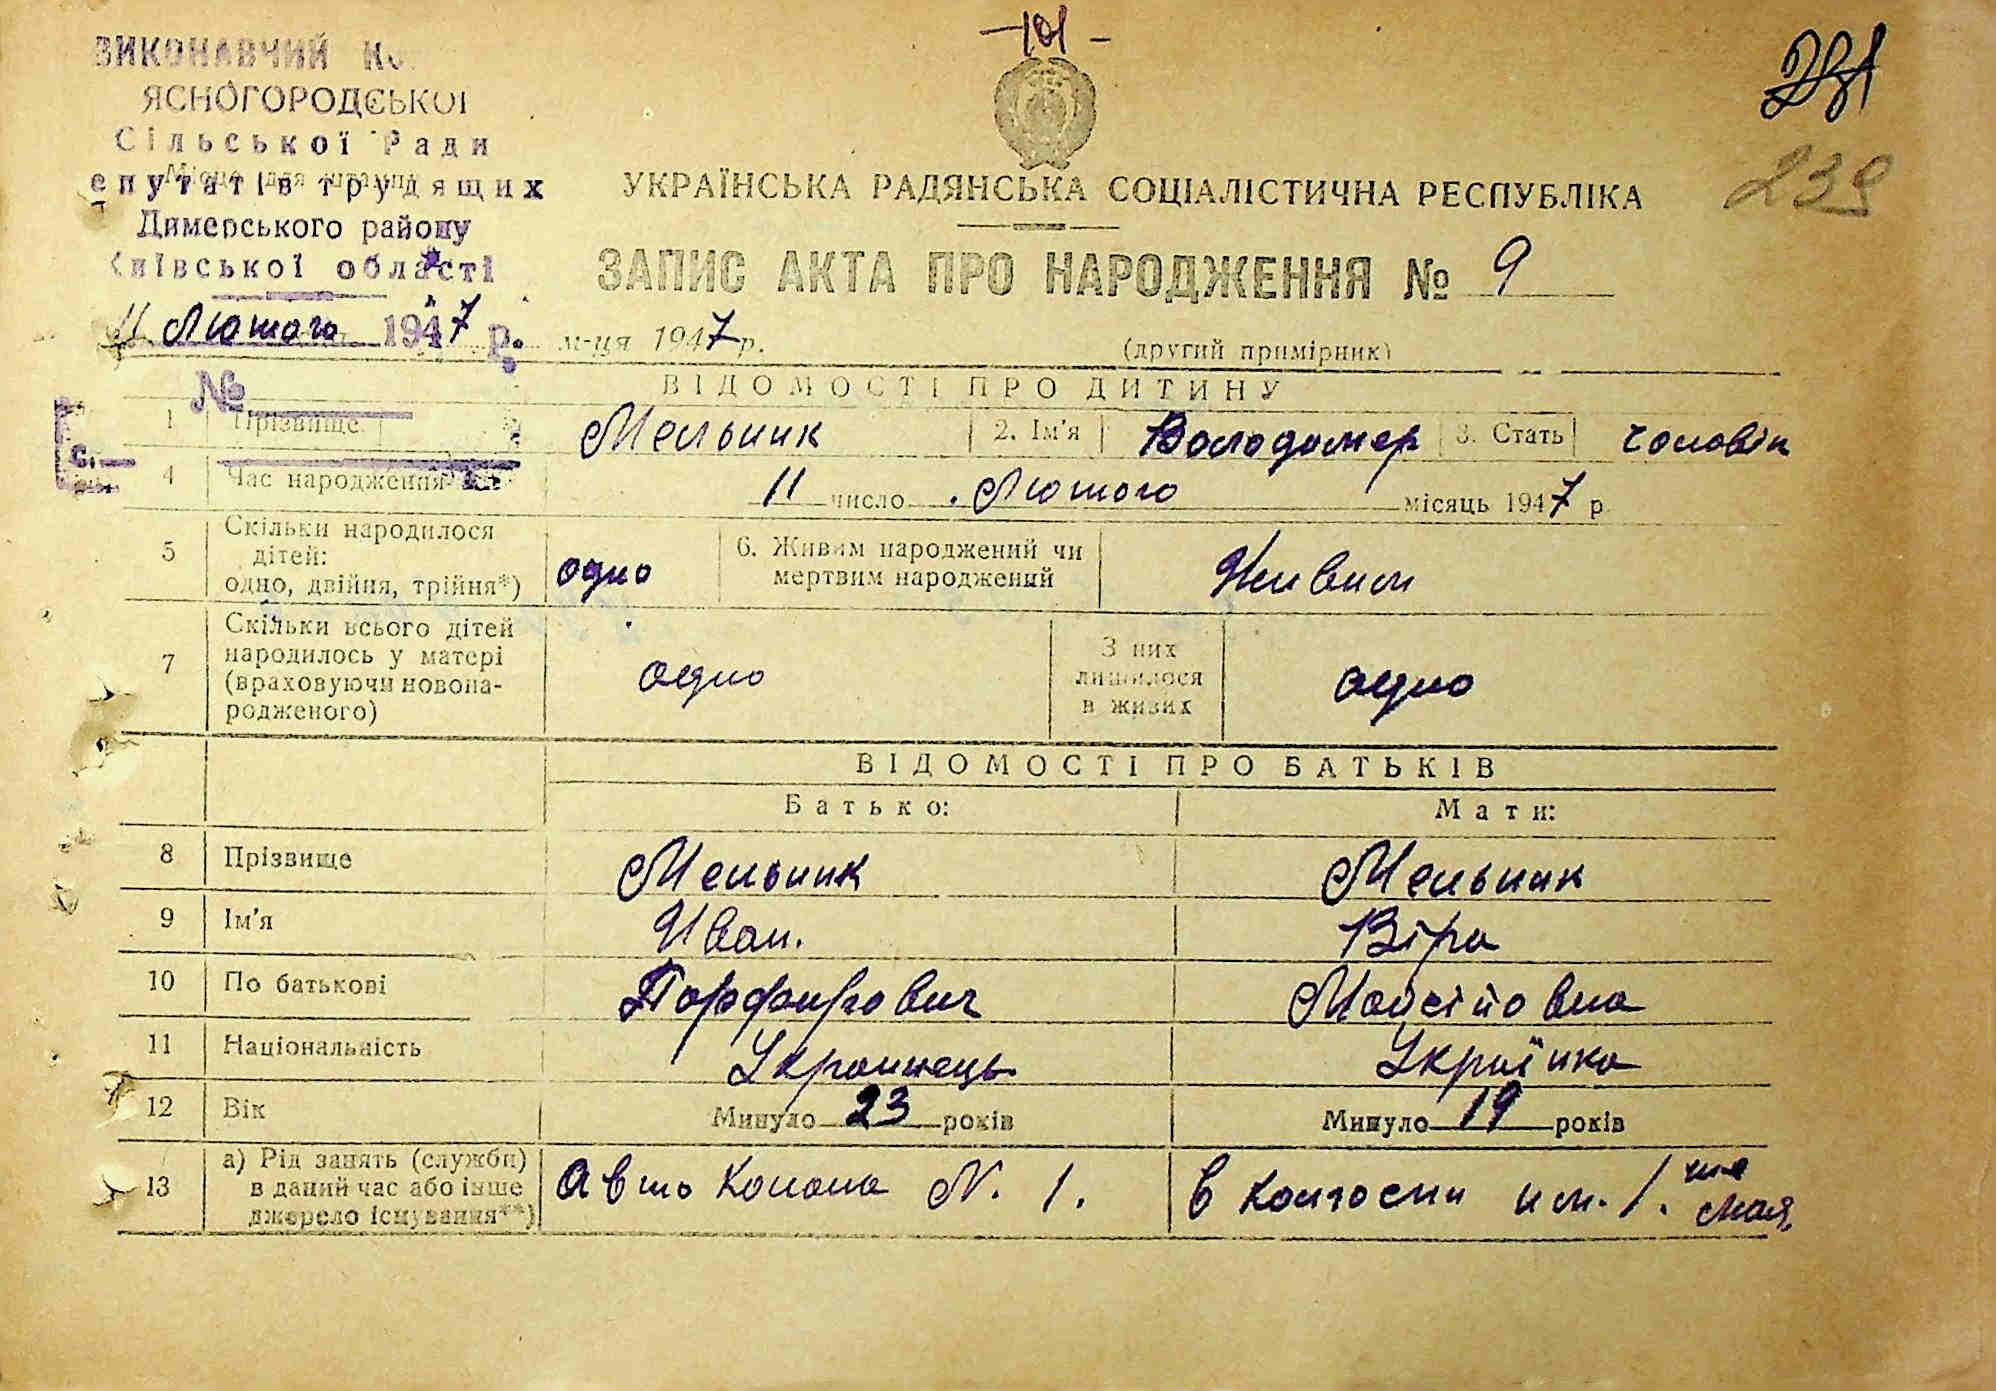 -101-
231
239
ВИКОНАВЧИЙ
ЯСНОГОРОДСЬКОЇ
Сільської Ради
епутатів трудящих
Димерського району
Київської області
11 Лютого 1947 р.
№
УКРАЇНСЬКА РАДЯНСЬКА СОЦІАЛІСТИЧНА РЕСПУБЛІКА
ЗАПИС АКТА ПРО НАРОДЖЕННЯ № 9
м-ця 1947 р.
(другий примірник)
ВІДОМОСТІ ПРО ДИТИНУ
1 Прізвище Мельник 2. Ім'я Володимер 3. Стать чоловік
4 Час народження 11 число Лютого місяць 1947 р
5 Скільки народилося дітей: одно, двійня, трійня*) одно 6. Живим народжений чи мертвим народжений Живим
7 Скільки всього дітей народилось у матері (враховуючи новонародженого) одно З них лишилося в живих одно
ВІДОМОСТІ ПРО БАТЬКІВ
Батько: Мати:
8 Прізвище Мельник Мельник
9 Ім'я Иван. Віра
10 По батькові Порфирович Мойсійовна
11 Національність Украинець Українка
12 Вік Минуло 23 років Минуло 19 років
13 а) Рід занять (служби) в даний час або інше джерело існування**) Авто Колона N. 1. в колгоспи им. 1. мая